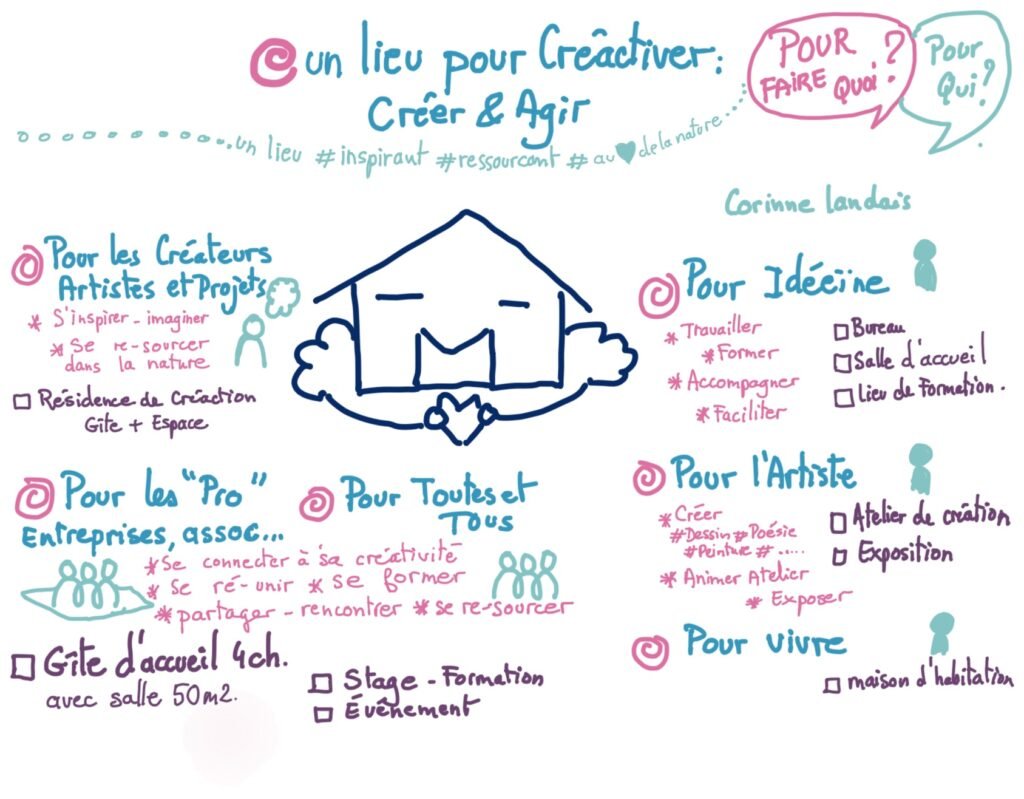 un lieu pour Crêactiver:
Créer & Agir
POUR FAIRE QUOI?
Pour Qui?
un lieu #inspirant #ressourcant # au ♥ de la nature
Corinne landais
Pour les Créateurs
Artistes et Projets
* S'inspirer - imaginer
* Se re-sourcer
dans la nature
□ Résidence de Créaction
Gîte + Espace
Pour Idéeïne
* Travailler
* Former
* Accompagner
* Faciliter
□ Bureau
□ Salle d'accueil
□ Lieu de Formation.
Pour les "Pro"
Entreprises, assoc...
Pour Toutes et
Tous
* Se connecter à sa créativité
* se ré-unir * se former
* partager - rencontrer * se re-sourcer
□ Gîte d'accueil 4ch.
avec salle 50m2.
□ Stage - Formation
□ Évênement
Pour l'Artiste
* Créer
#Dessin #Poésie
#Peinture # .....
* Animer Atelier
* Exposer
□ Atelier de création
□ Exposition
Pour vivre
□ maison d'habitation